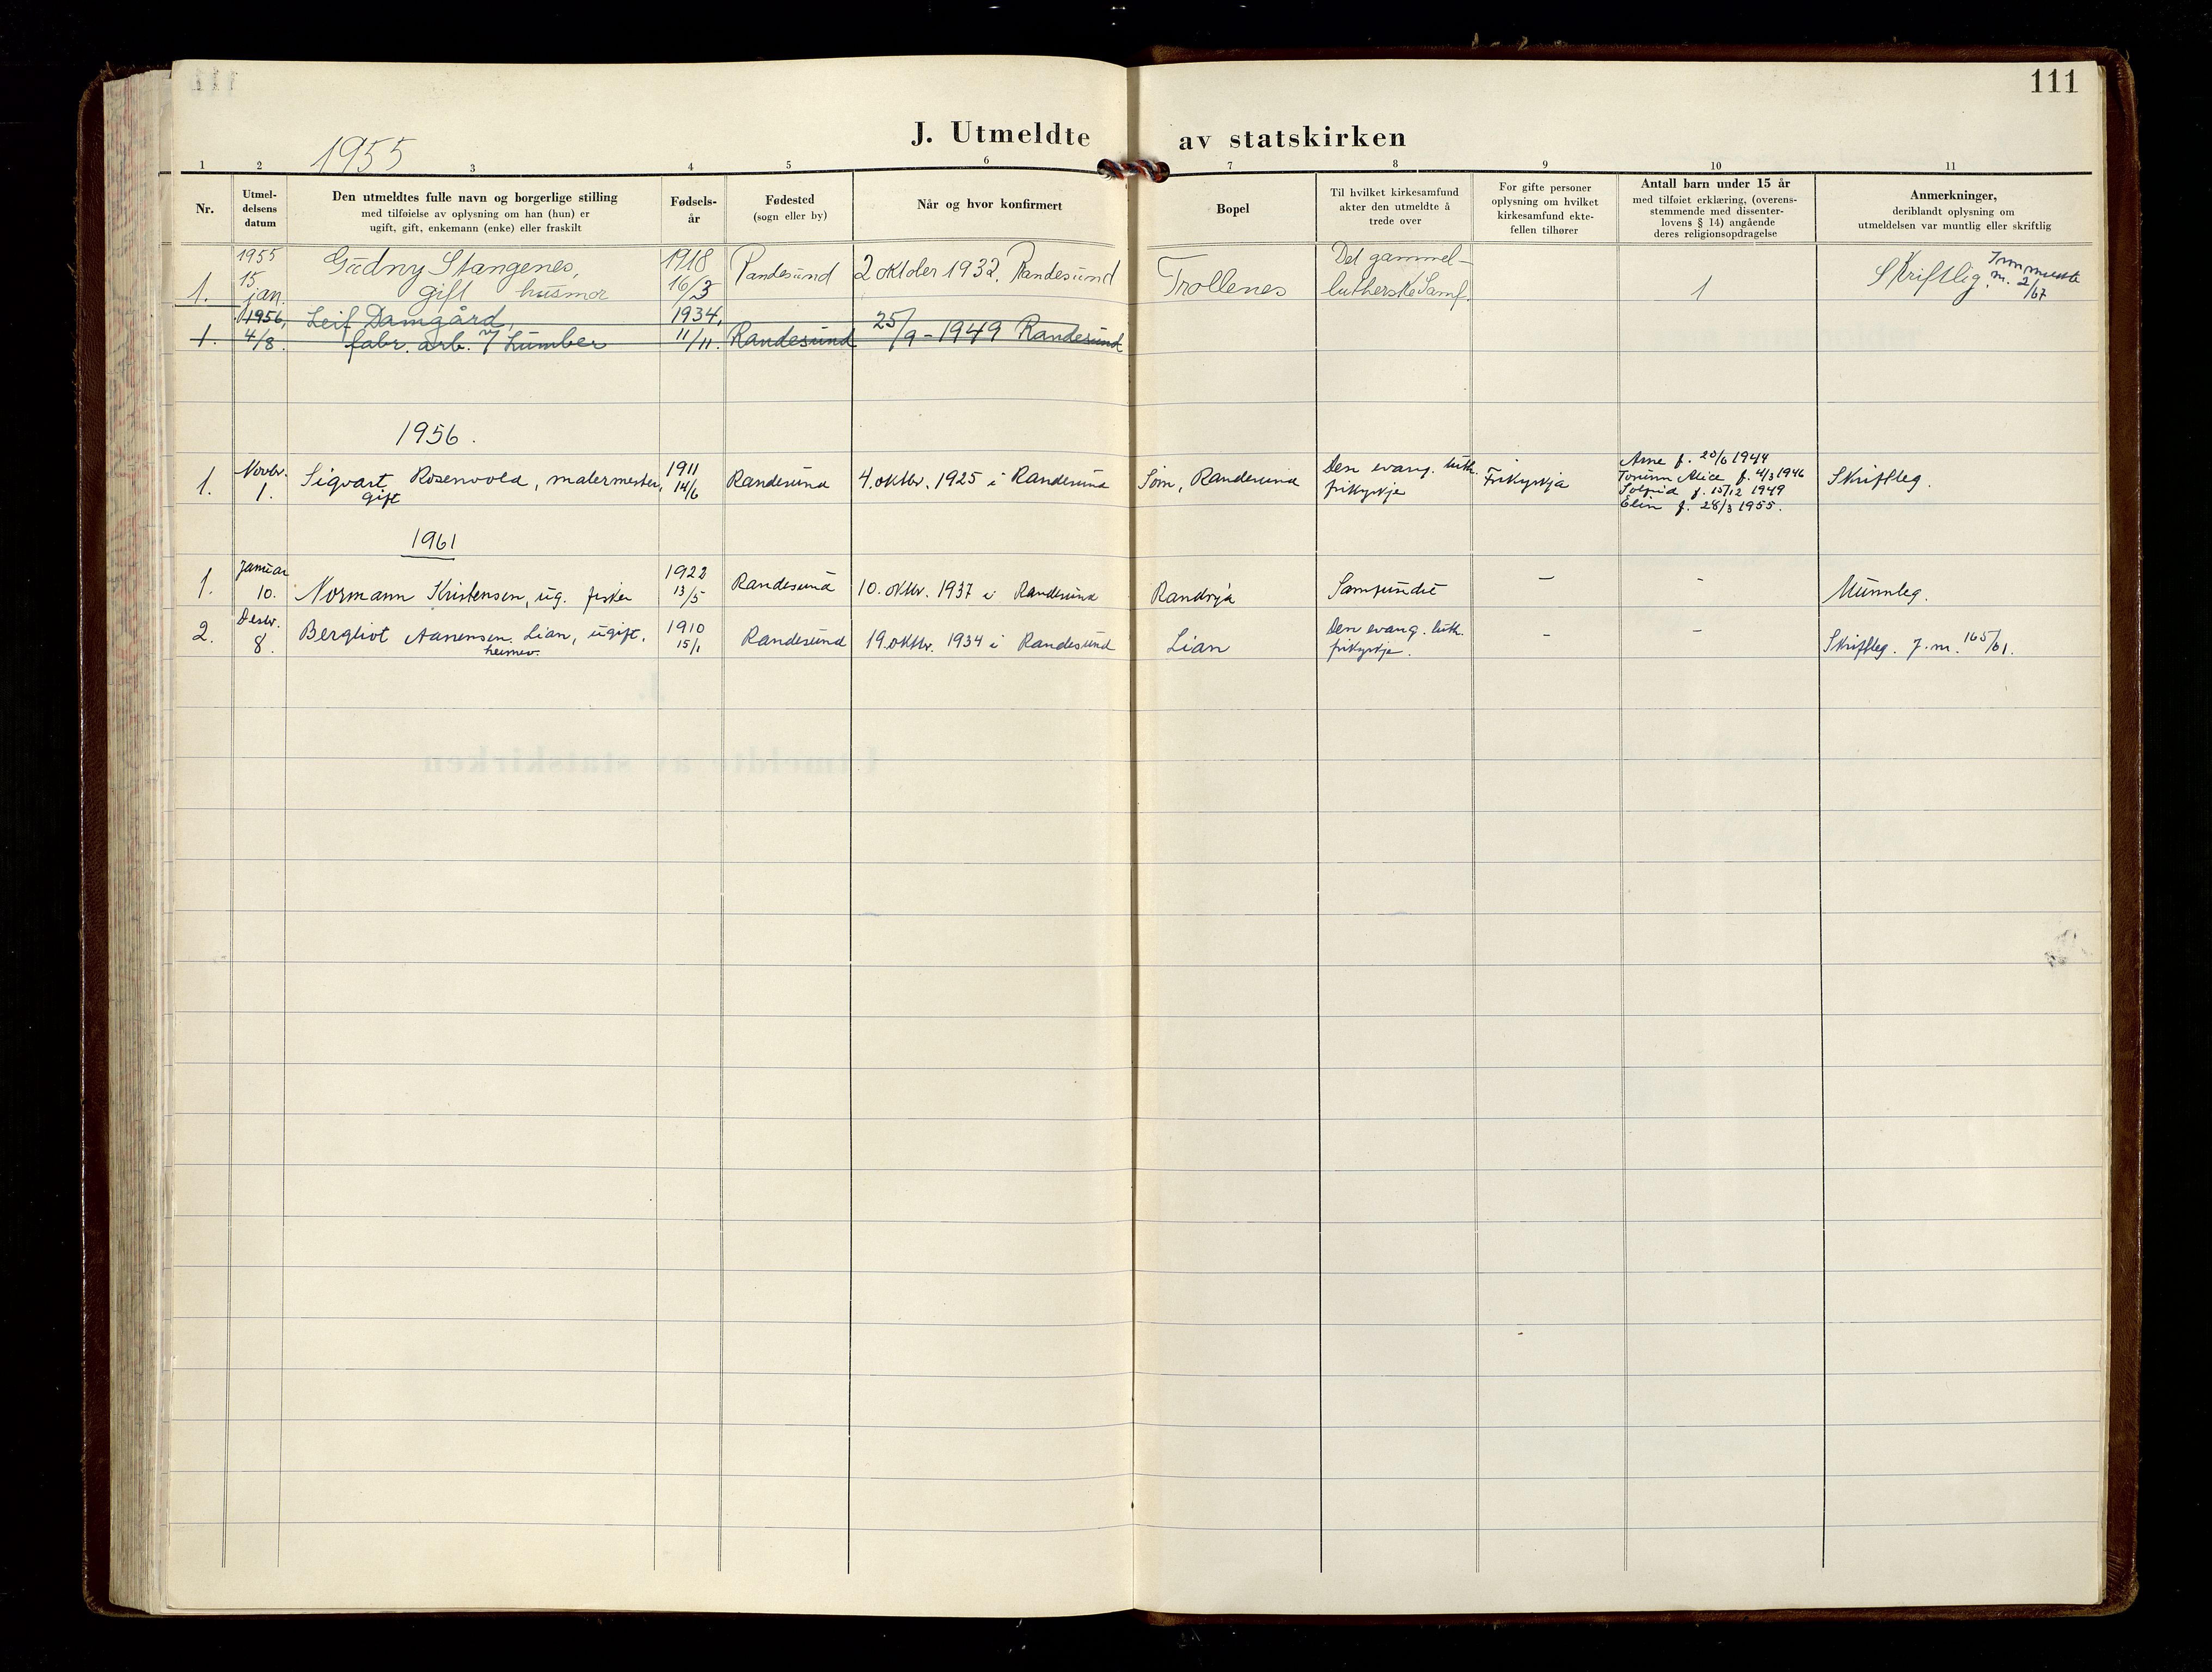 111
J. Utmeldte av statskirken
1955
1 2 3 4 5 6 7 8 9 10 11
Nr.
Utmel-
delsens
datum
Den utmeldtes fulle navn og borgerlige stilling
med tilføielse av oplysning om han (hun) er
ugift, gift, enkemann (enke) eller fraskilt
Fødsels-
år
Fødested
(sogn eller by)
Når og hvor konfirmert
Bopel
Til hvilket kirkesamfund
akter den utmeldte å
trede over
For gifte personer
oplysning om hvilket
kirkesamfund ekte-
fellen tilhører
Antall barn under 15 år
med tilføiet erklæring, (overens-
stemmende med dissenter-
lovens § 14) angående
deres religionsopdragelse
Anmerkninger,
deriblandt oplysning om
utmeldelsen var muntlig eller skriftlig
1.
1955
15
jan.
Gudny Stangenes,
gift husmor
1918
16/3
Randesund
2 oktober 1932. Randesund
Trollenes
Det gammel-
lutherske Samf.
1
Skriftlig. Innmeldte
m. 2/67
1.
1956,
4/8.
Leif Damgård,
fabr. arb. Lumber
1934,
11/11.
Randesund
25/9 - 1949 Randesund
1956.
1.
Novbr.
1.
Sigvart Rosenvold, malermester,
gift
1911
14/6
Randesund
4. oktbr. 1925 i Randesund
Søm, Randesund
Den evang. luth.
frikyrkje
Frikyrkja
Arne f. 20/6 1944
Torunn Alice f. 4/3 1946
Solfrid f. 15/12 1949
Elin f. 28/3 1955.
Skriftleg.
1961
1.
Januar
10.
Normann Kristensen, ug. fisker
1922
13/5
Randesund
10. oktbr. 1937 i Randesund
Randøya
Samfundet
-
-
Munnleg.
2.
Desbr.
8.
Bergliot Aanensen Lian, ugift,
heimev.
1910
15/1
Randesund
19. oktbr. 1934 i Randesund
Lian
Den evang. luth.
frikyrkje.
-
-
Skriftleg. J.m. 165/61.